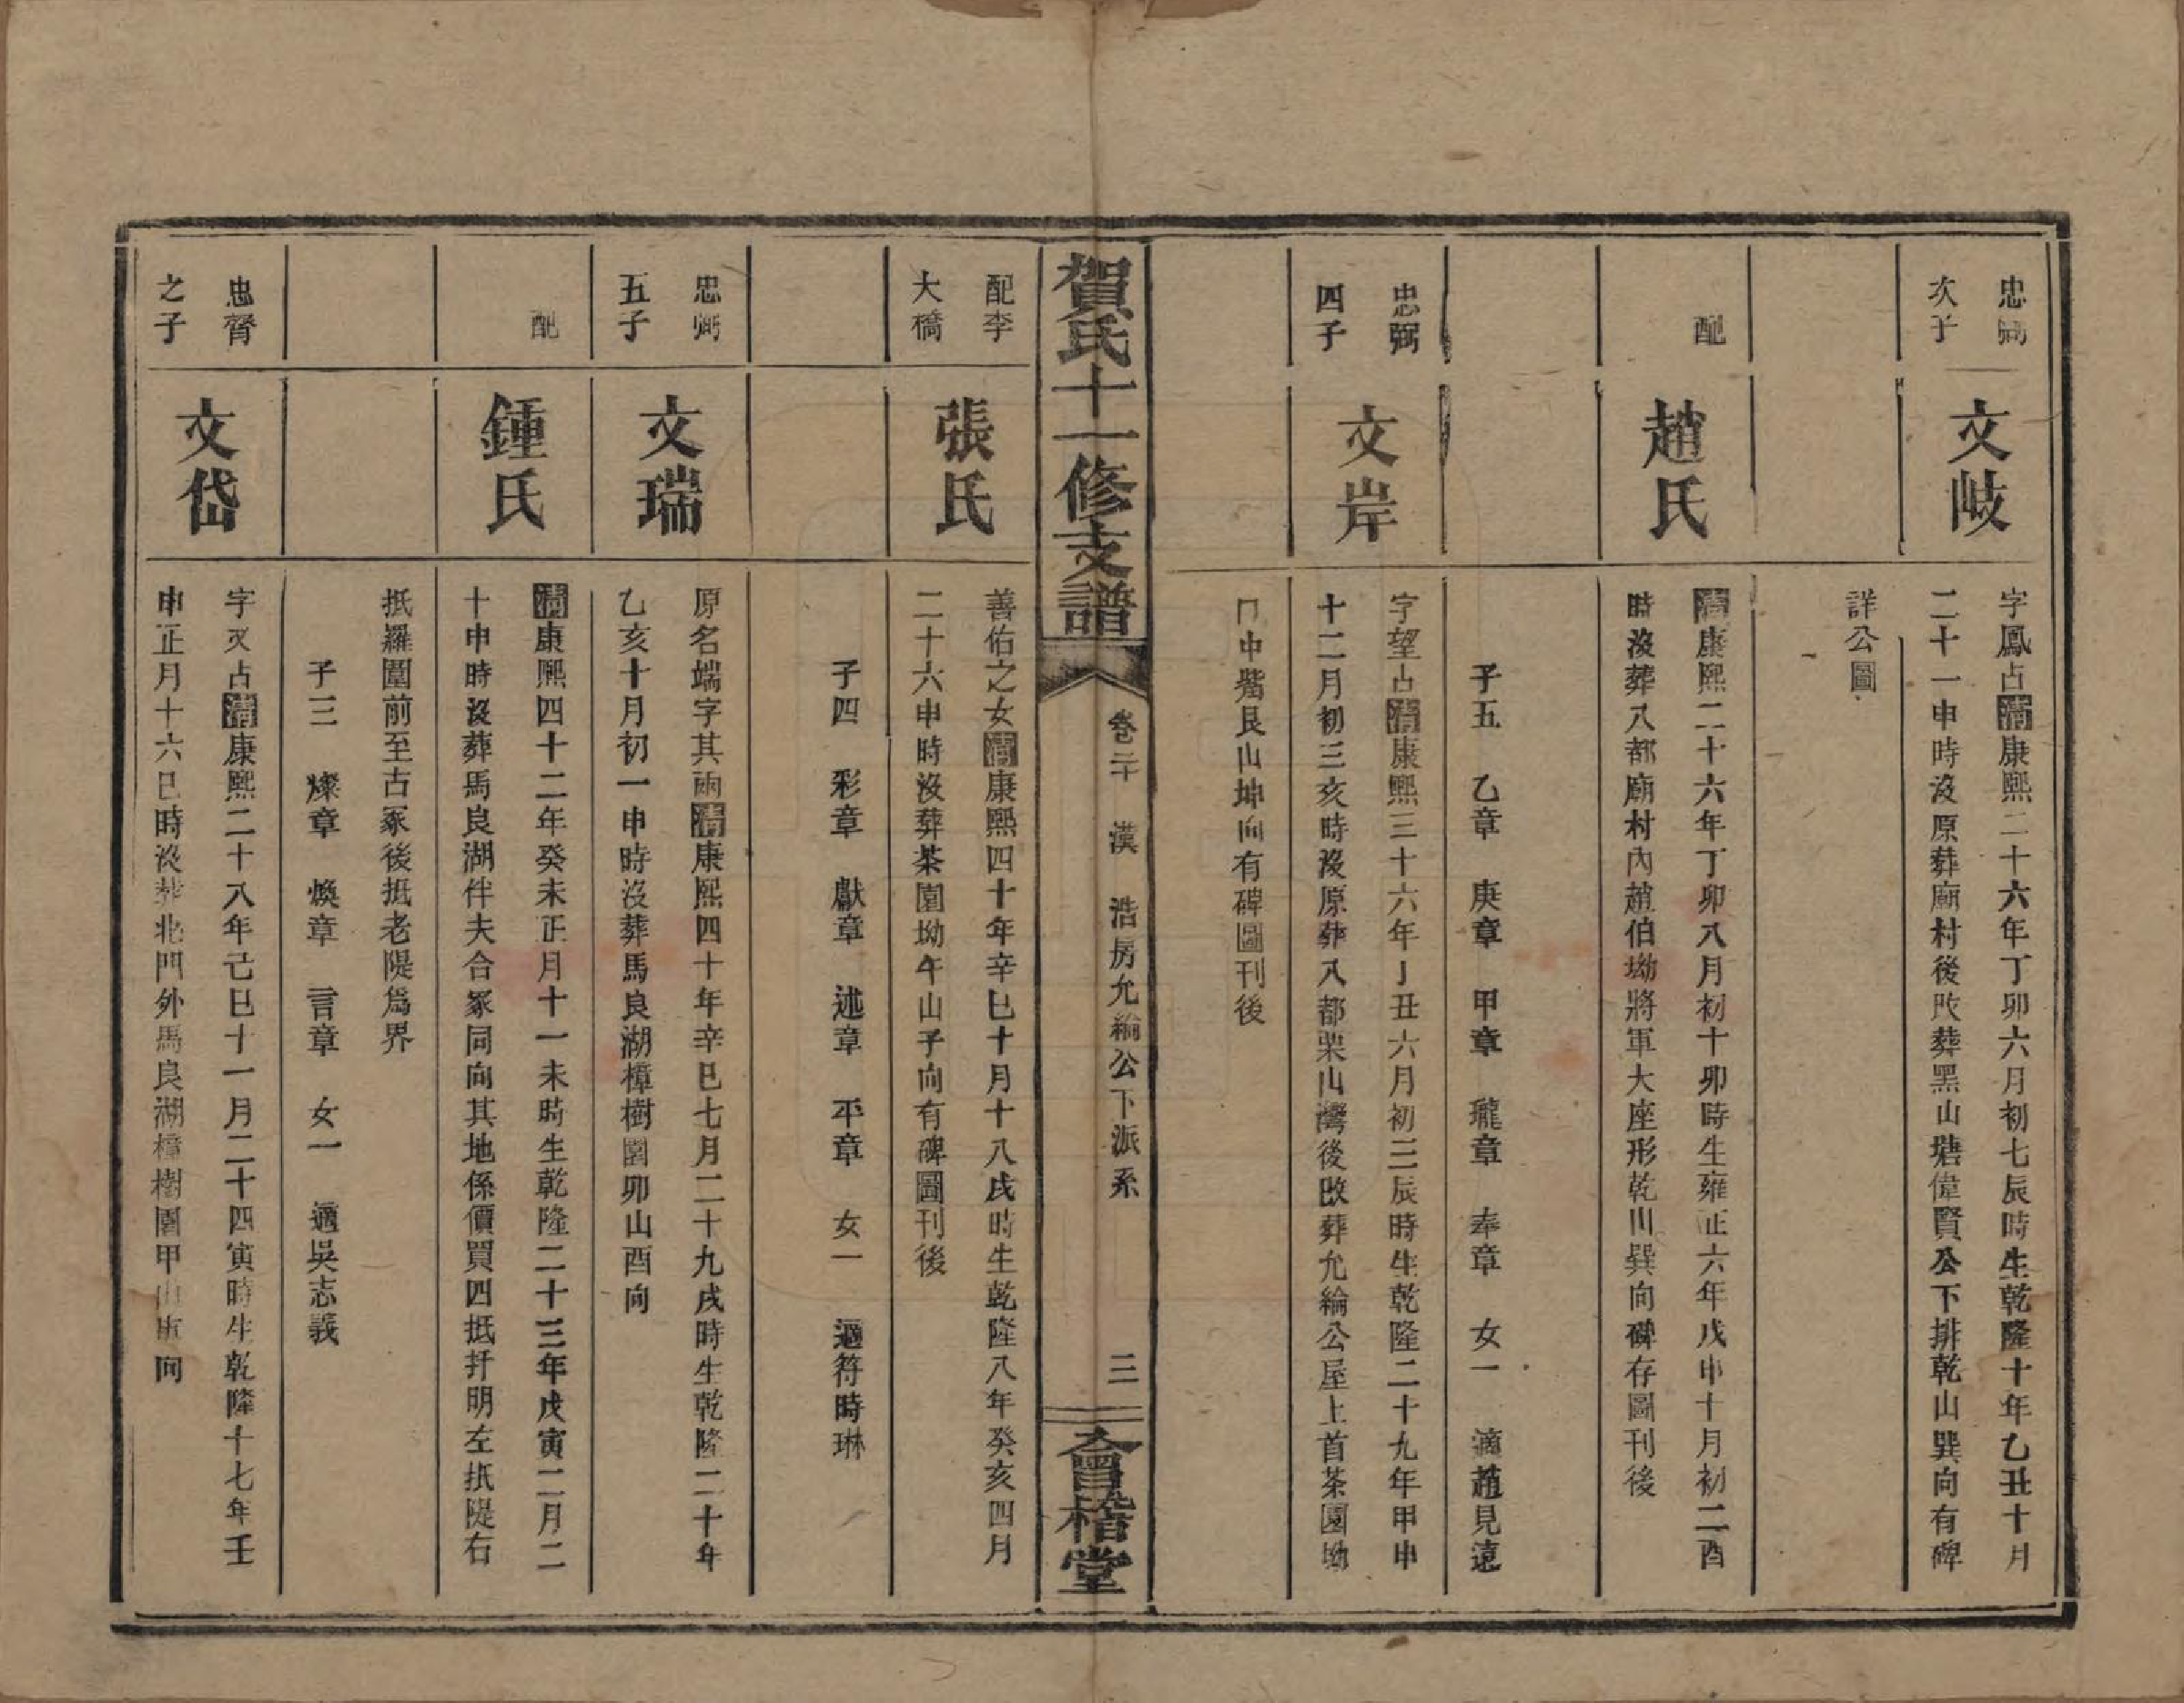 忠弼
次子
文岐
字鳳占清康熙二十六年丁卯六月初七辰時生乾隆十年乙丑十月
二十一申時沒原葬廟村後改葬黑山塘偉賢公下排乾山巽向有碑
詳公圖
配
趙氏
清康熙二十六年丁卯八月初十卯時生雍正六年戊申十月初二酉
時沒葬八都廟村內趙伯坳將軍大座形乾山巽向碑存圖刊後
子五 乙章 庚章 甲章 瓏章 奉章 女一 適趙見遠
忠弼
四子
文岸
字望占清康熙三十六年丁丑六月初三辰時生乾隆二十九年甲申
十二月初三亥時沒原葬八都栗山灣後改葬允綸公屋上首茶園坳
口中嘴艮山坤向有碑圖刊後
賀氏十一修支譜
卷二十 漢 浩房允綸公下派系
三
會稽堂
配李
大橋
張氏
善佑之女清康熙四十年辛巳十月十八戌時生乾隆八年癸亥四月
二十六申時沒葬茶園坳午山子向有碑圖刊後
子四 彩章 獻章 述章 平章 女一 適符時琳
忠弼
五子
文瑞
原名端字其兩清康熙四十年辛巳七月二十九戌時生乾隆二十年
乙亥十月初一申時沒葬馬良湖樟樹園卯山酉向
配
鍾氏
清康熙四十二年癸未正月十一未時生乾隆二十三年戊寅二月二
十申時沒葬馬良湖伴夫合冢同向其地係價買四抵扦明左抵隄右
抵羅圍前至古冢後抵老隄爲界
子三 燦章 煥章 言章 女一 適吳志義
忠胥
之子
文岱
字又占清康熙二十八年己巳十一月二十四寅時生乾隆十七年壬
申正月十六巳時沒葬北門外馬良湖樟樹園甲山庚向